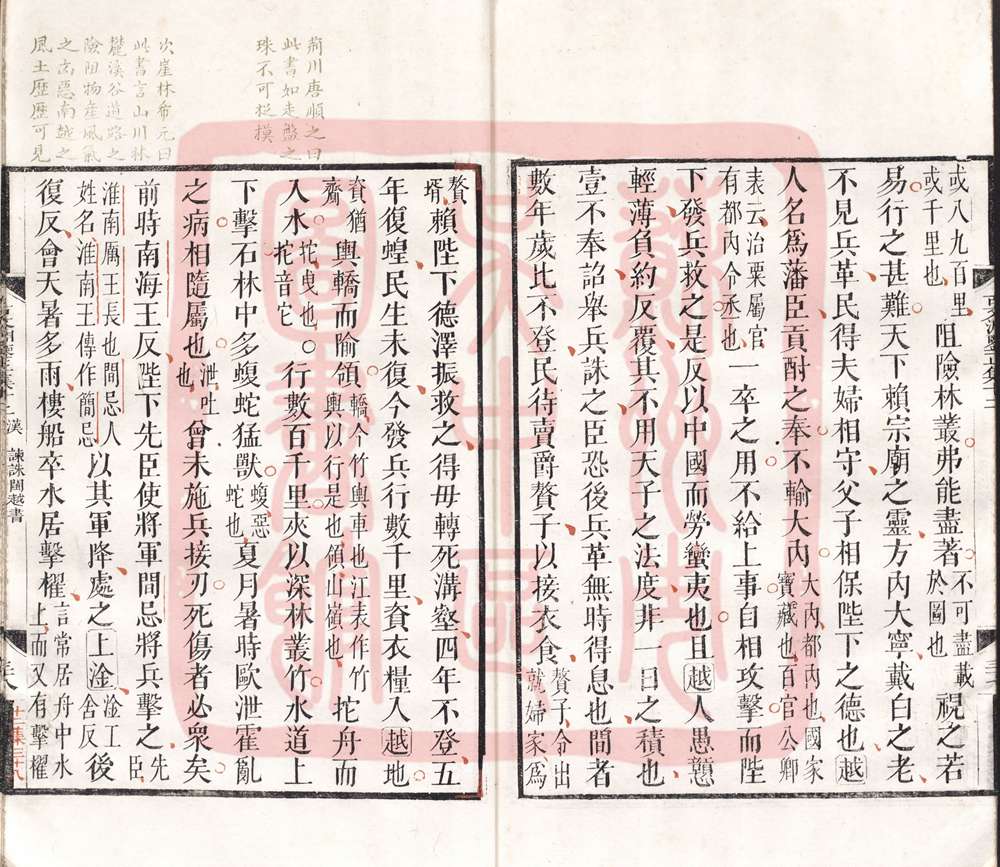 荊川唐順之曰
此書如走盤之
珠不可捉摸
次崖林希元曰
此書言山川林
麓溪谷道路之
險阻物産風氣
之㐫惡南越之
風土歷歷可見
或八九百里或千里也阻險林叢弗能盡著不可盡載於圖也視之若
易行之甚難天下賴宗廟之靈方內大寧戴白之老
不見兵革民得夫婦相守父子相保陛下之德也越
人名爲藩臣貢酎之奉不輸大內大內都內也國家寶藏也百官公卿
表云治粟屬官有都內令丞也一卒之用不給上事自相攻擊而陛
下發兵救之是反以中國而勞蠻夷也且越人愚戇
輕薄負約反覆其不用天子之法度非一日之積也
壹不奉詔舉兵誅之臣恐後兵革無時得息也間者
數年歲比不登民待賣爵贅子以接衣食贅子令出就婦家爲
贅壻賴陛下德澤振救之得毋轉死溝壑四年不登五
年復蝗民生未復今發兵行數千里資衣糧入越地
資猶齎輿轎而隃領轎今竹輿車也江表作竹輿以行是也領山嶺也拕舟而
入水拕曳也拕音它行數百千里夾以深林叢竹水道上
下擊石林中多蝮蛇猛獸蝮惡蛇也夏月暑時歐泄霍亂
之病相隨屬也泄吐也曾未施兵接刃死傷者必衆矣
前時南海王反陛下先臣使將軍間忌將兵擊之先臣
淮南厲王長也間忌人姓名淮南王傳作簡忌以其軍降處之上淦淦工含反後
復反會天暑多雨樓船卒水居擊櫂言常居舟中水上而又有擊櫂
漢 諫誅閩越書